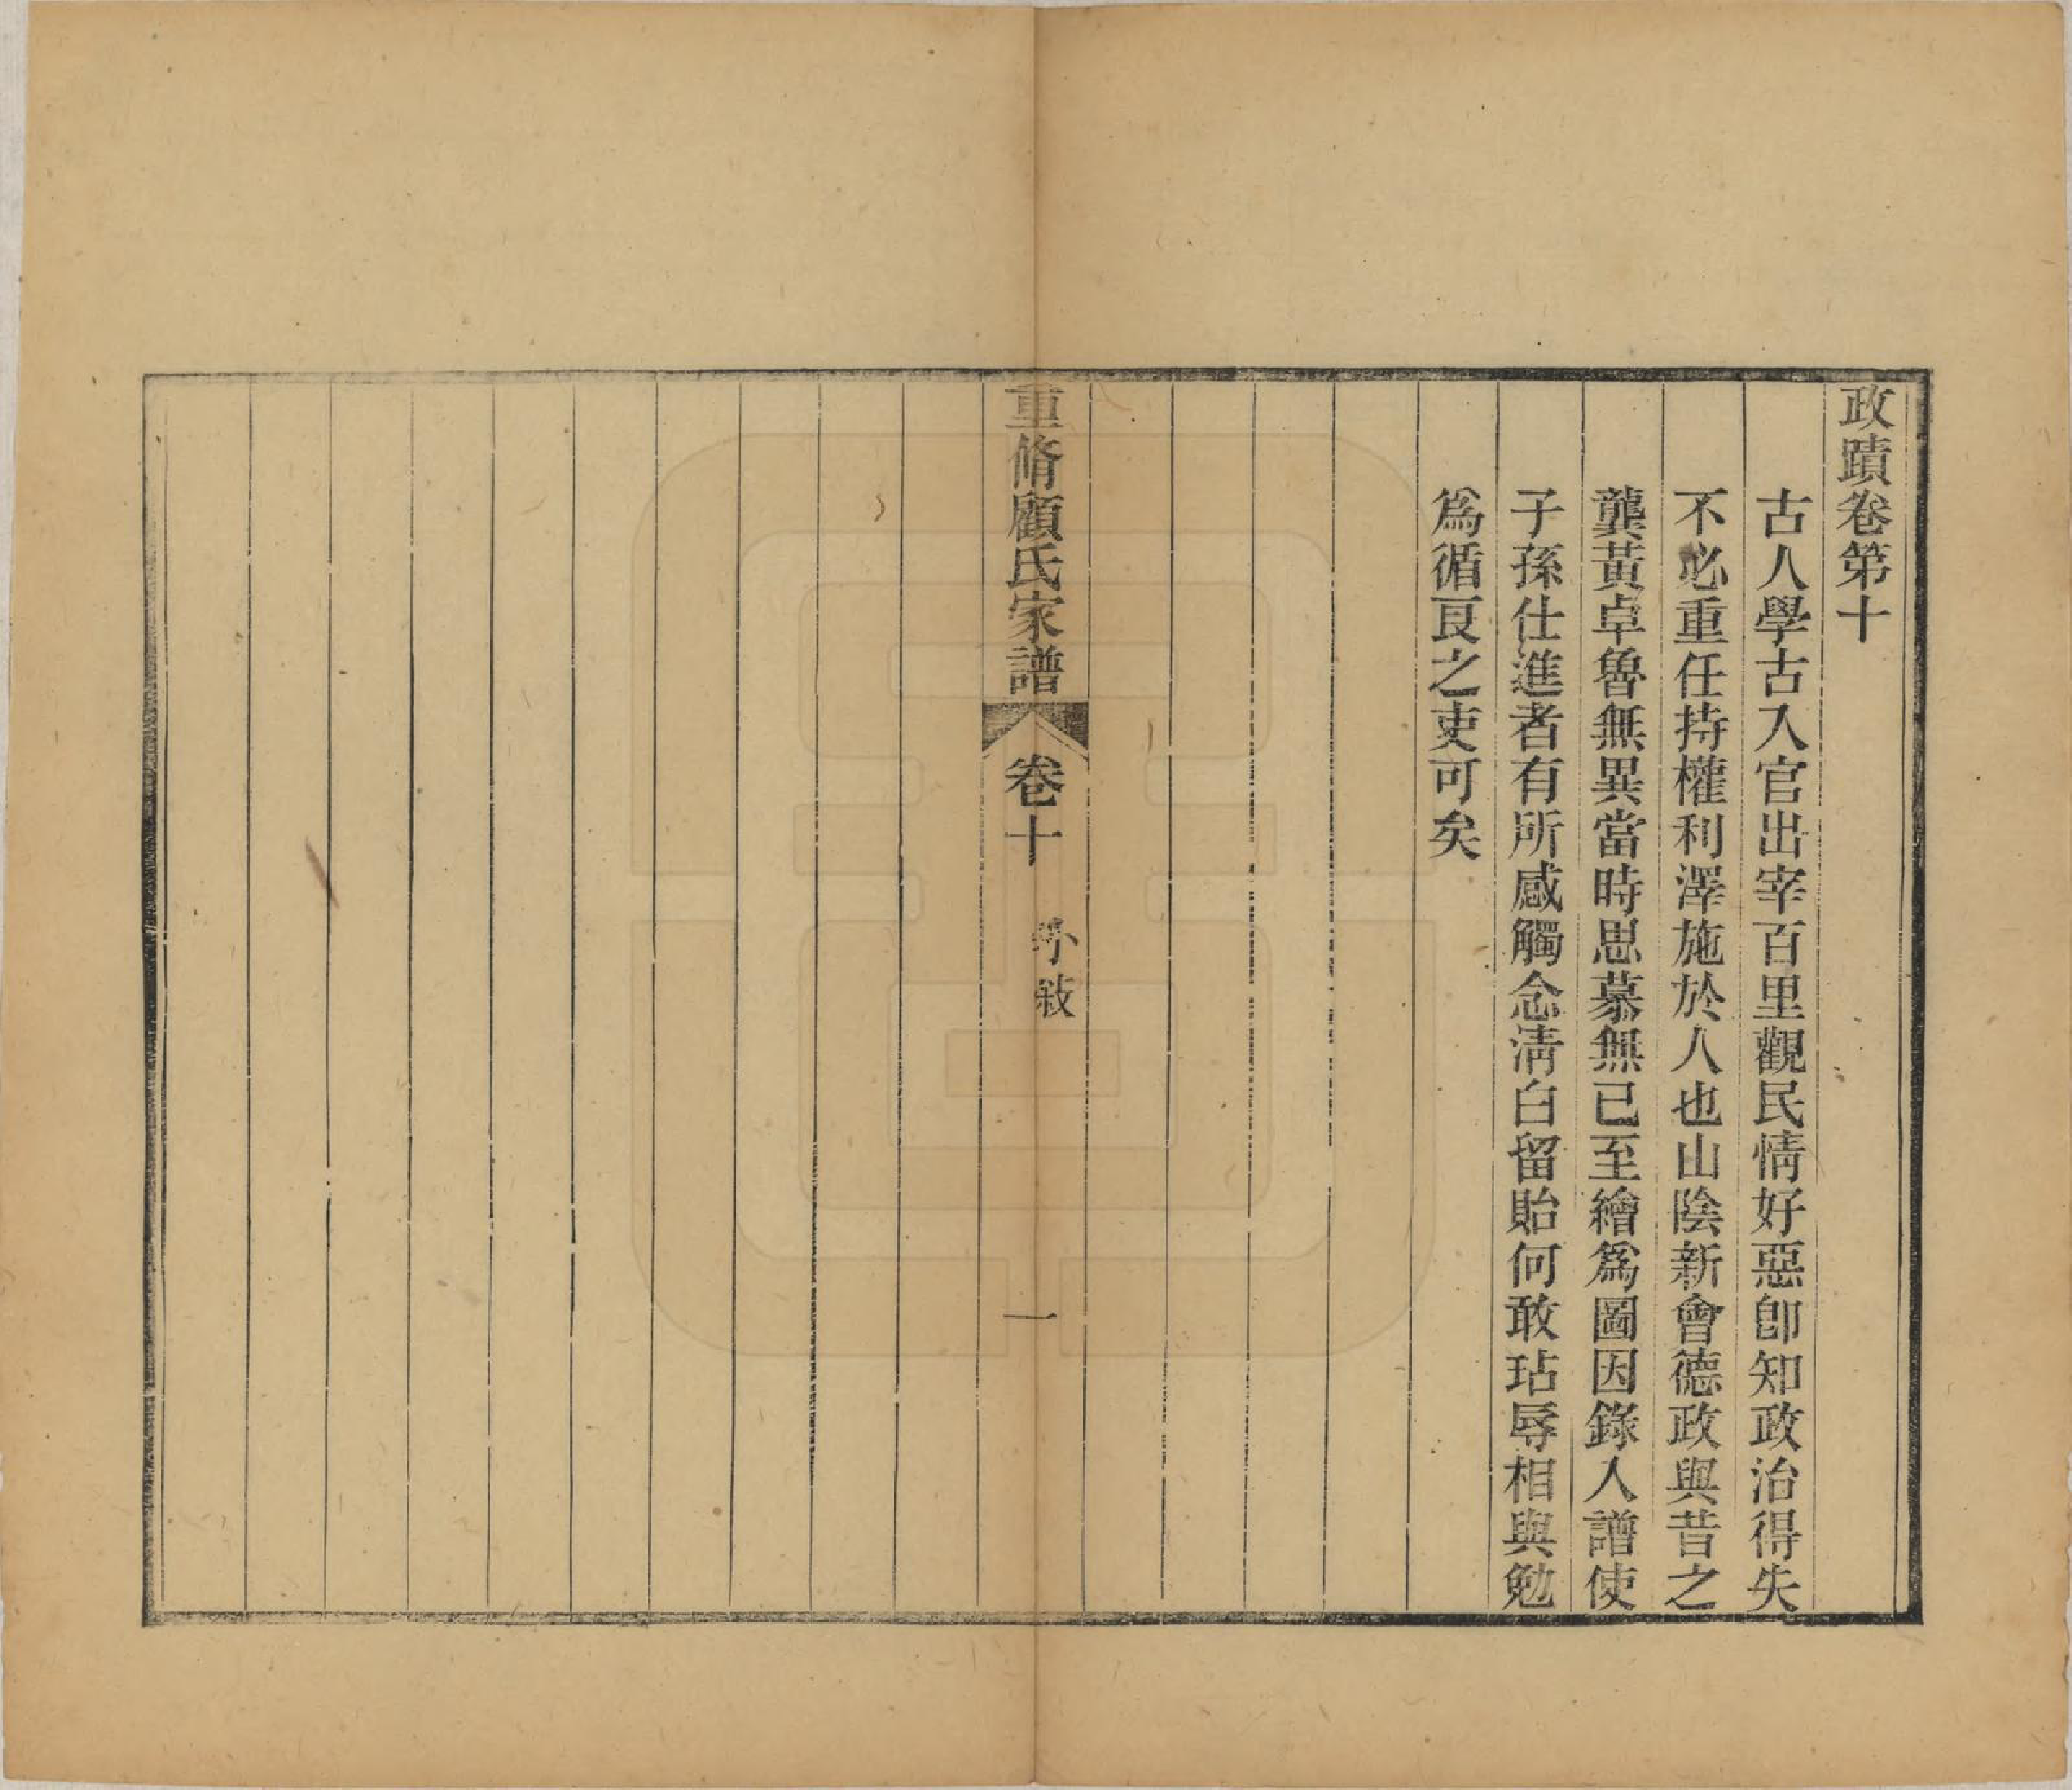 政蹟卷第十
古人學古入官出宰百里觀民情好惡卽知政治得失
不必重任持權利澤施於人也山陰新會德政與昔之
龔黃卓魯無異當時思慕無已至繪爲圖因錄入譜使
子孫仕進者有所感觸念淸白留貽何敢玷辱相與勉
爲循良之吏可矣
重脩顧氏家譜 卷十 小敍 一